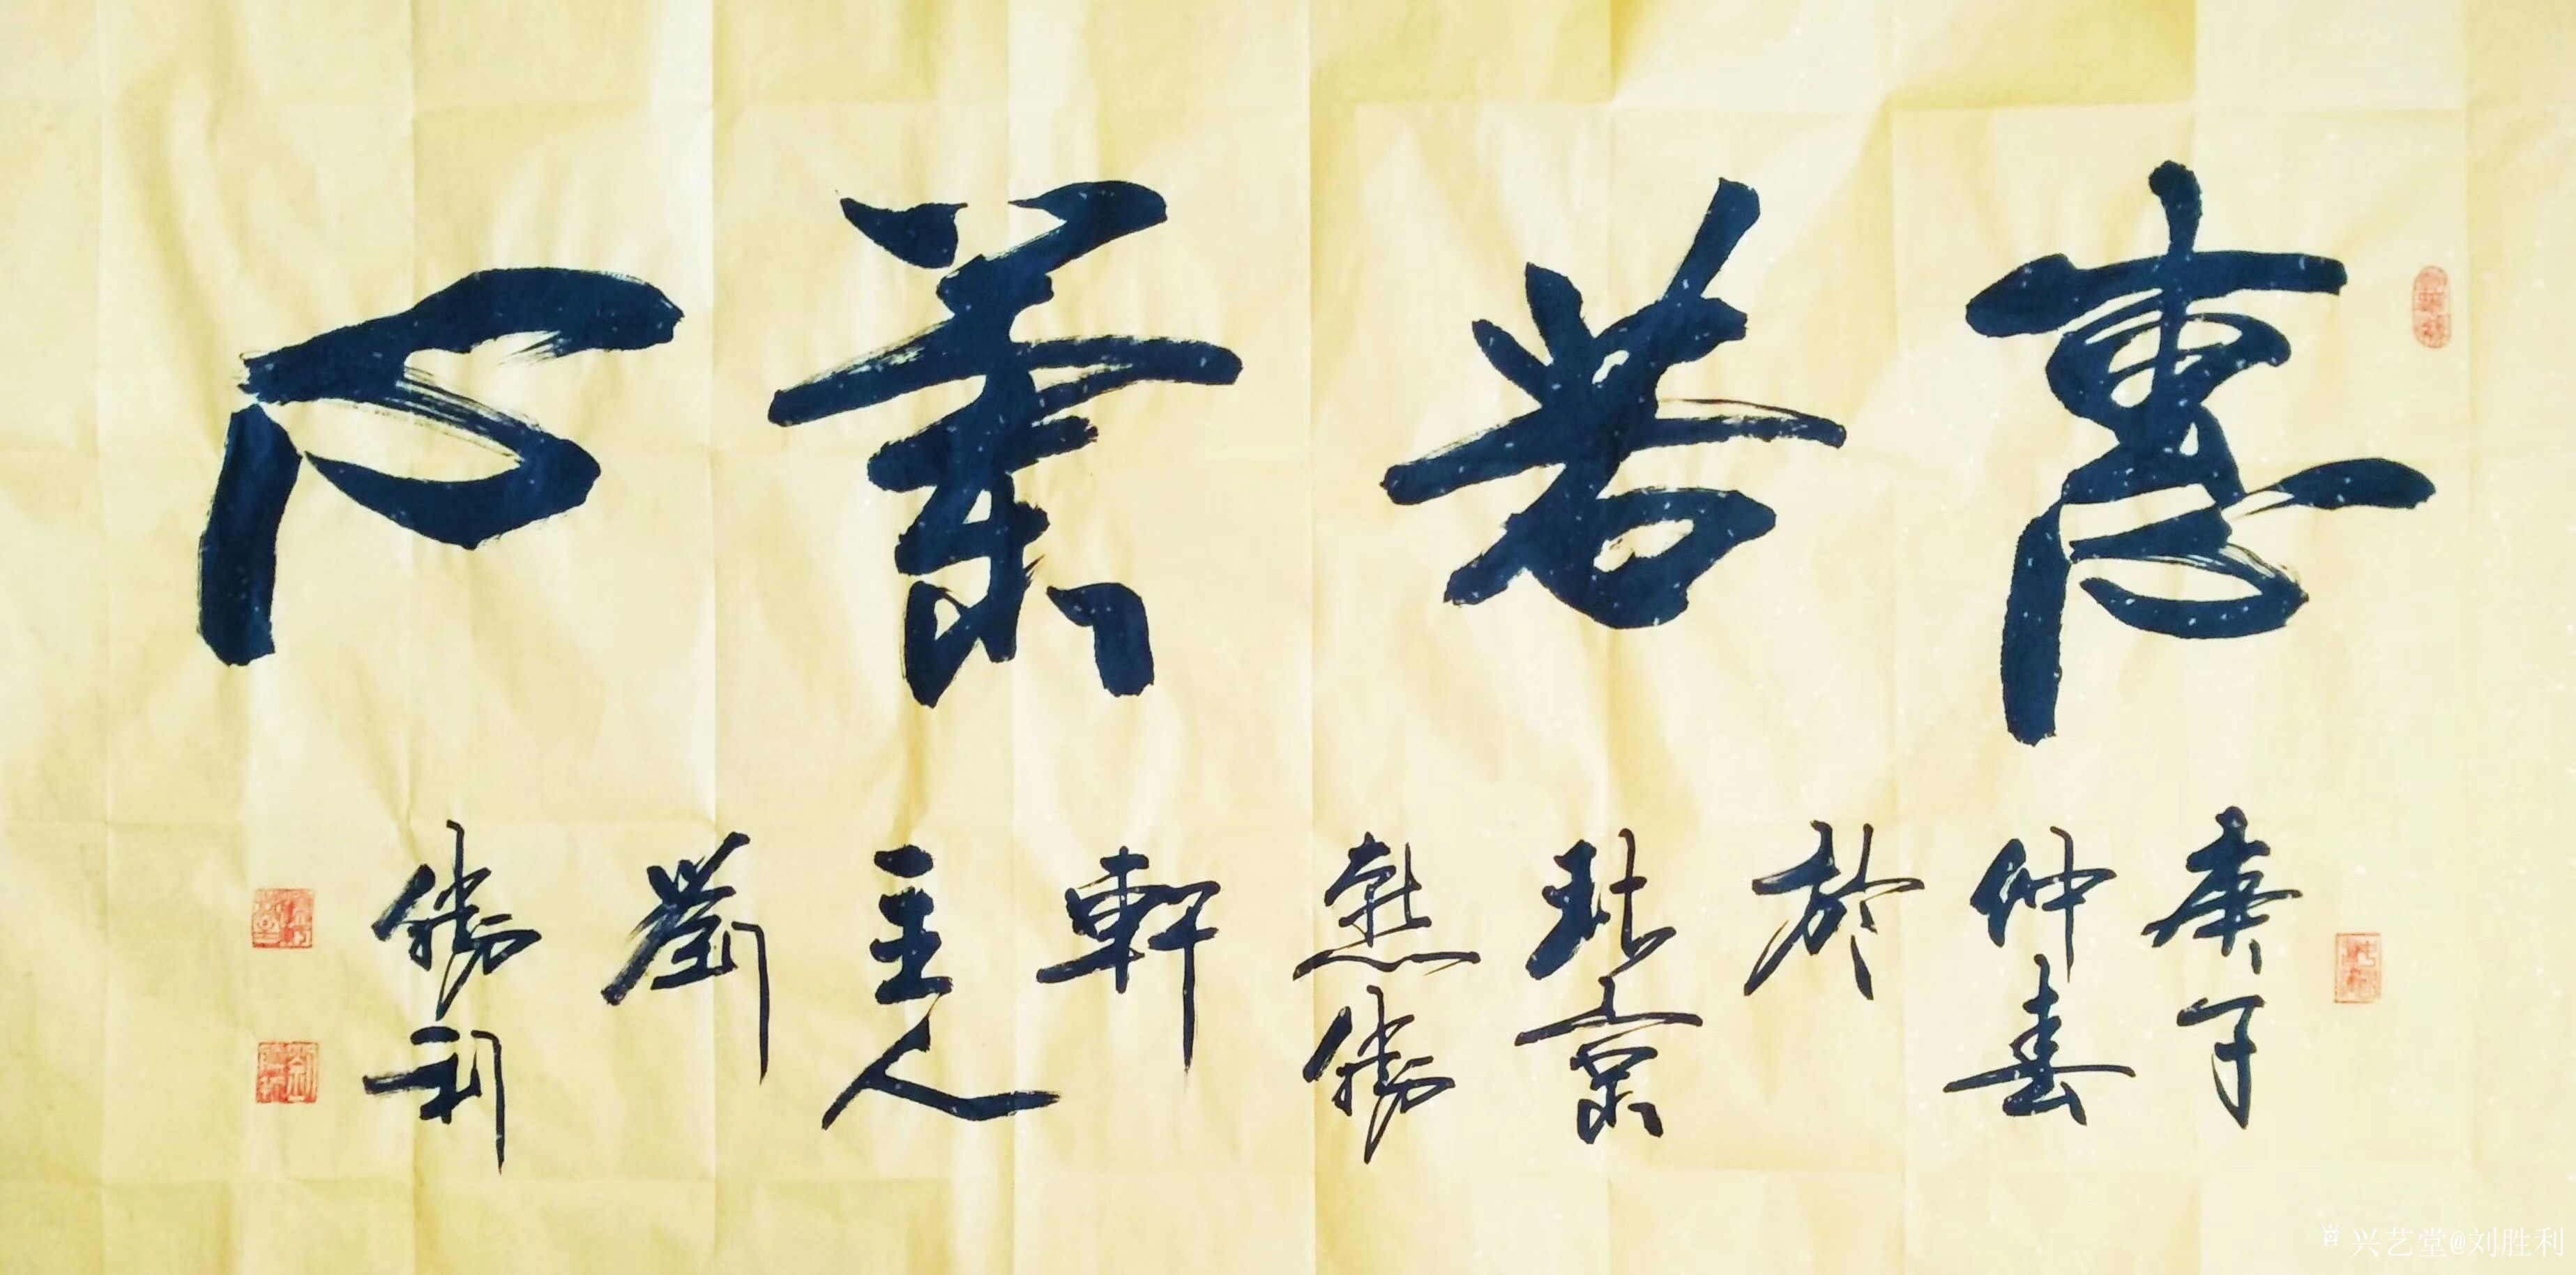 惠若蘭心
庚子
仲春
於
北京
勝
軒
主人
劉
勝利
兴艺堂@刘胜利